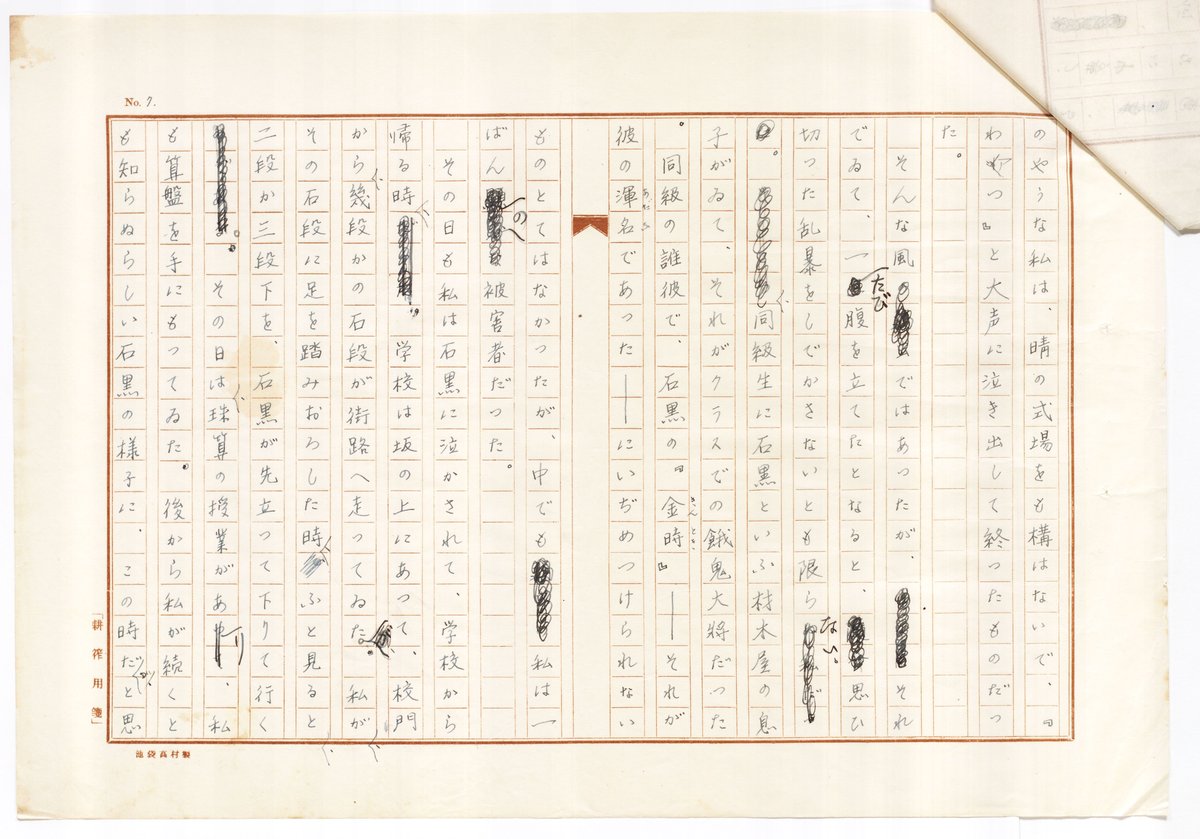 No. 7.
のやうな私は、晴の式場をも構はないで、『
わつ』と大声に泣き出して終つたものだつ
た。
そんな風ではあつたが、それ
でゐて、一たび腹を立てたとなると、思ひ
切つた乱暴をしでかさないとも限らない
。同級生に石黒といふ材木屋の息
子がゐて、それがクラスでの餓鬼大将だつた
。同級の誰彼で、石黒の『金時』――それが
きんとき
彼の渾名であつた――にいぢめつけられない
あだな
ものとてはなかつたが、中でも私は一
ばんのへ被害者だつた。
その日も私は石黒に泣かされて、学校から
帰る時、学校は坂の上にあつて、校門
から幾段かの石段が街路へ走つてゐたが、私が
その石段に足を踏みおろした時ふと見ると
二段か三段下を、石黒が先立つて下りて行く
。その日は珠算の授業があり、私
も算盤を手にもつてゐた。後から私が続くと
も知らぬらしい石黒の様子に、この時だと思
「耕窄用箋」
池袋高村製